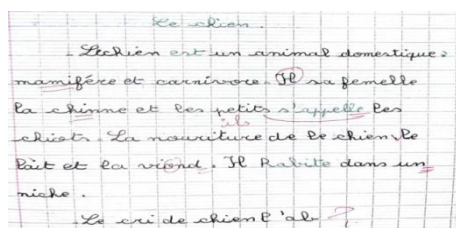 Le chien.
- Lechien est un animal domestique :
mamifére et carnivore. Il sa femelle
la chinne et les petits s'appelle les
ils
chiots. La nouriture de le chien, le
lait et la viond. Il habite dans un
niche.
- Le cri de chien l'ab ?